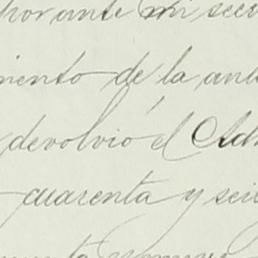 por ante mi secre
miento de la ant
devolvió el Adm
cuarenta y seis